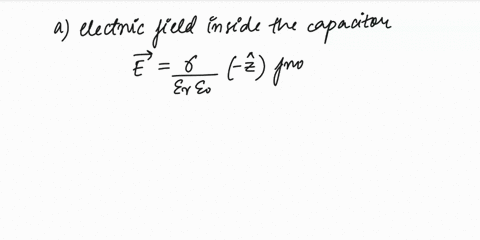 a) electric field inside the capacitor
$\vec{E} = \frac{\sigma}{\varepsilon_r \varepsilon_0} (-\hat{z})$ fro